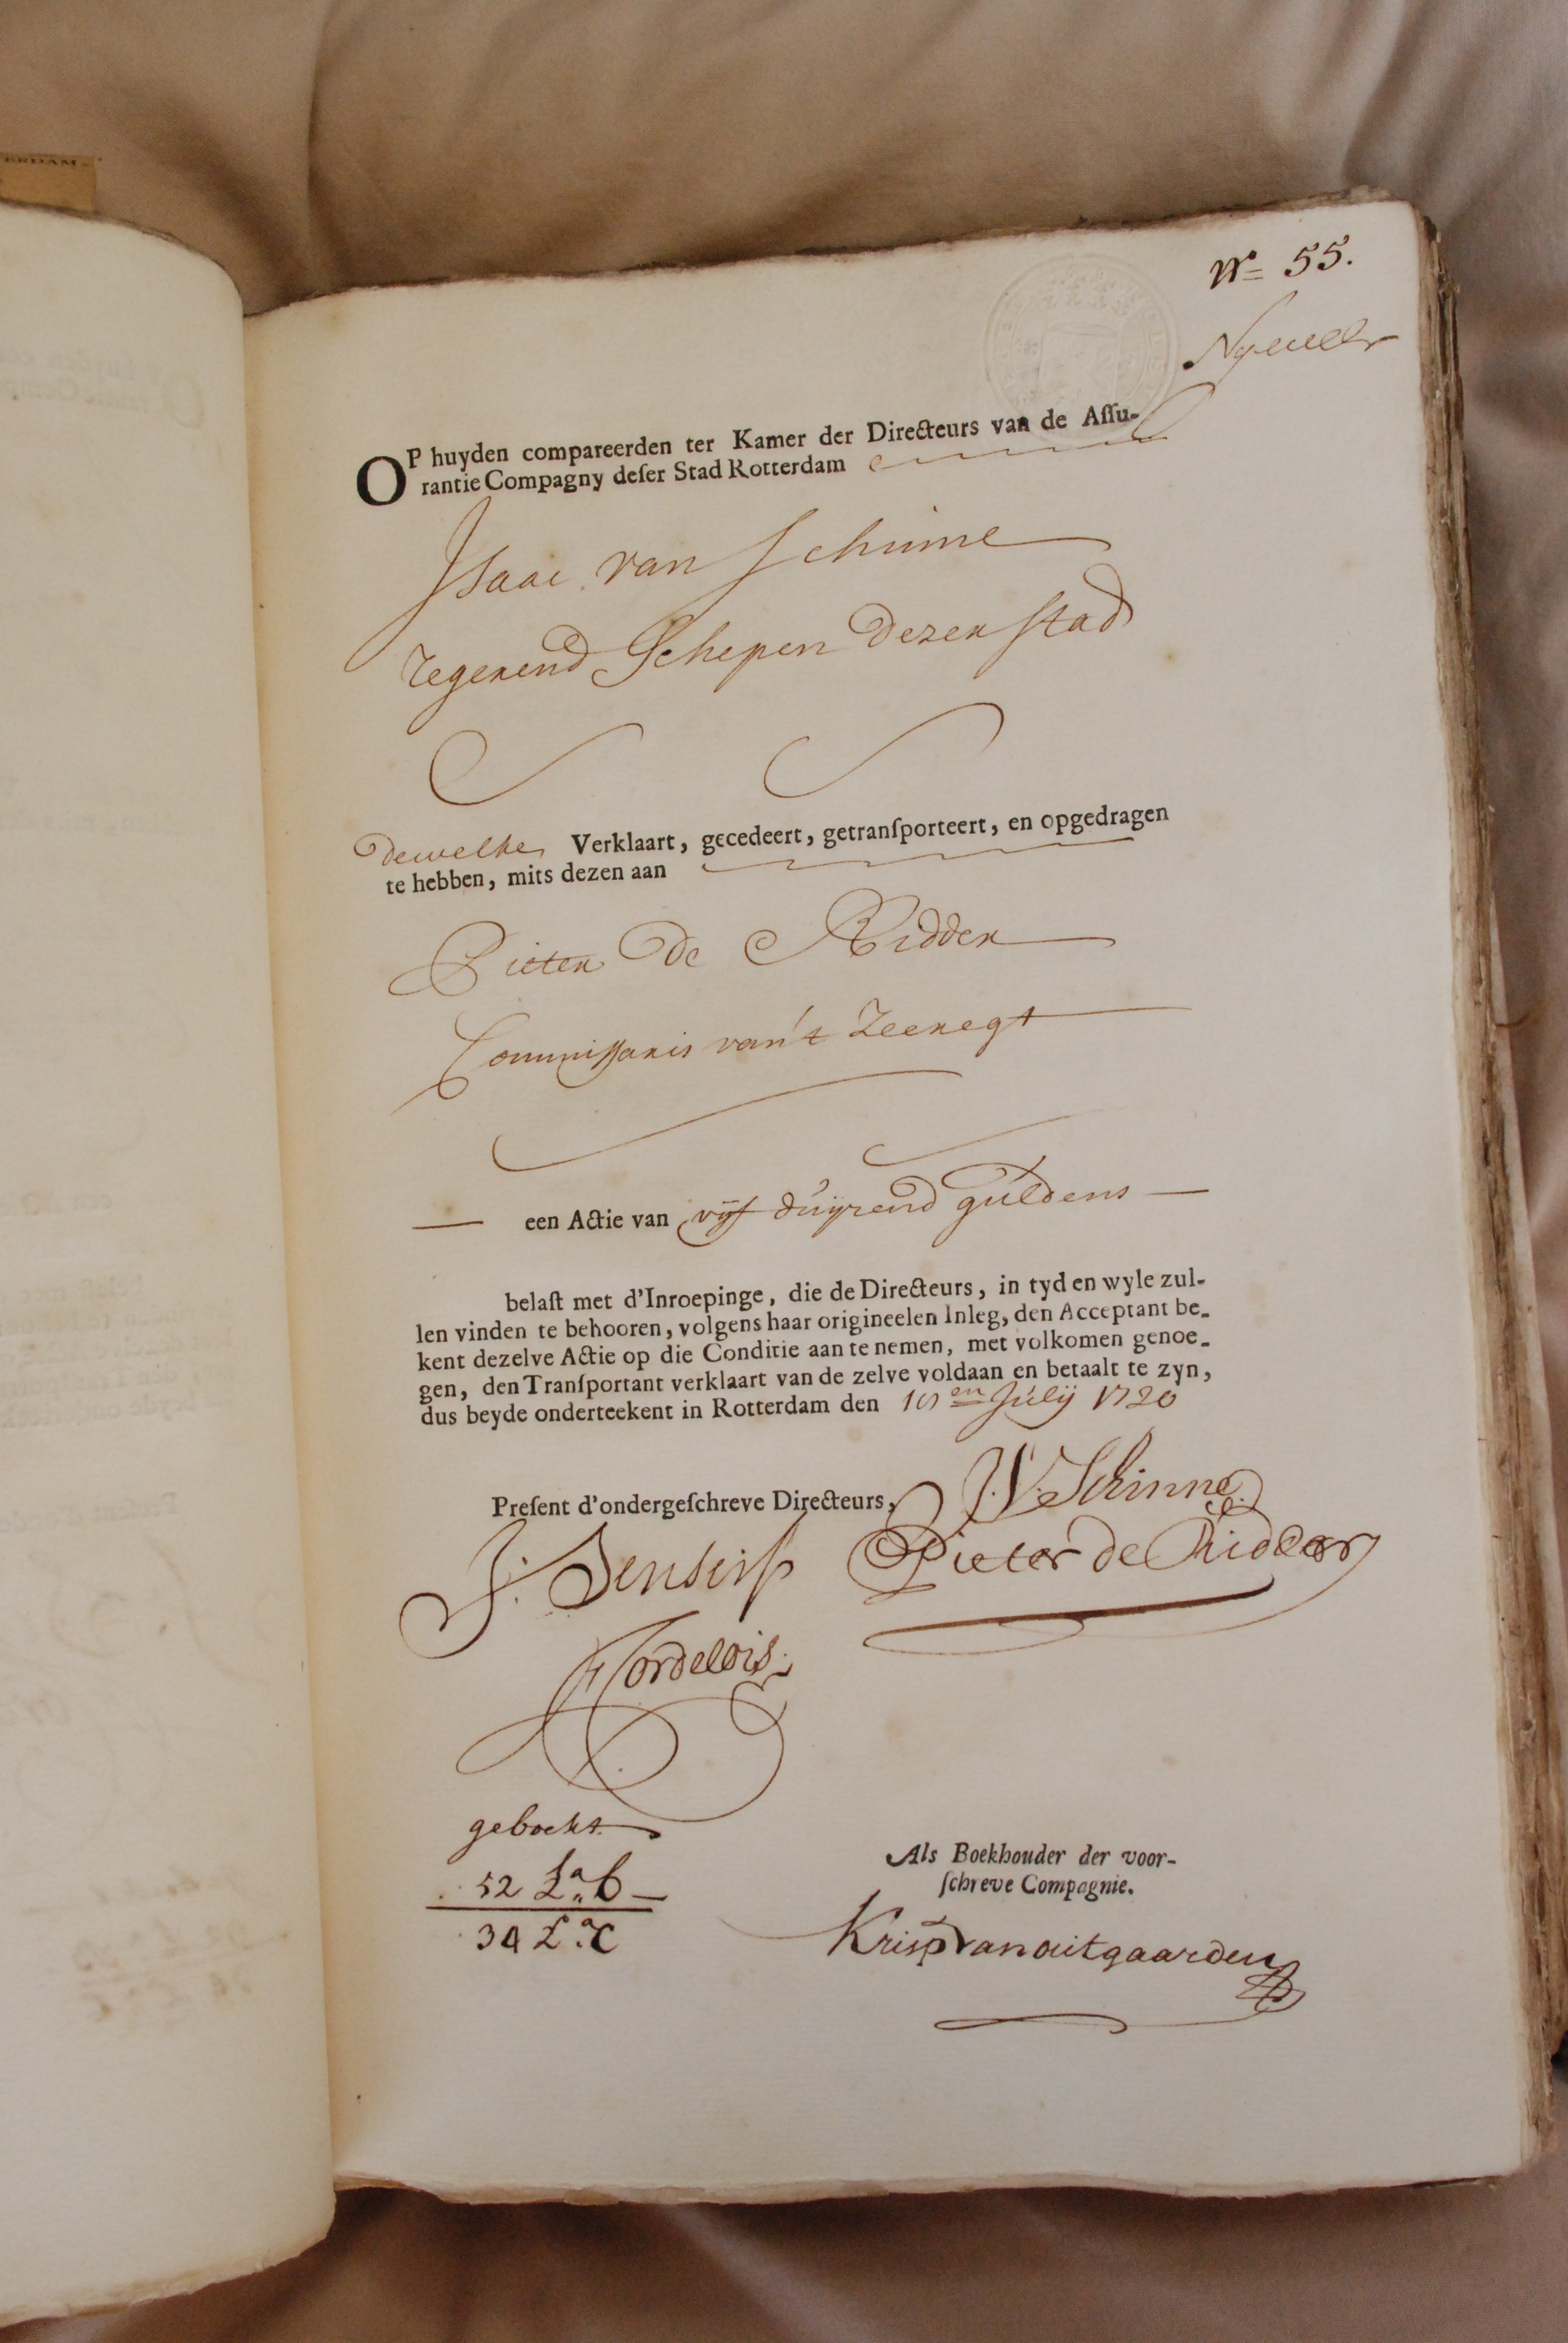 No 55.
OP huyden compareerden ter Kamer der Directeurs van de Aſſu-
rantie Compagny deſer Stad Rotterdam
Isaac van Schinne
regerend Schepen dezer stad
dewelke Verklaart, gecedeert, getranſporteert, en opgedragen
te hebben, mits dezen aan
Pieter de Ridder
Commissaris van't Zeeregt
een Actie van vijf duyzend guldens
belaſt met d'Inroepinge, die de Directeurs, in tyd en wyle zul-
len vinden te behooren, volgens haar origineelen Inleg, den Acceptant be-
kent dezelve Actie op die Conditie aan te nemen, met volkomen genoe-
gen, den Tranſportant verklaart van de zelve voldaan en betaalt te zyn,
dus beyde onderteekent in Rotterdam den July 1720
Preſent d'ondergeſchreve Directeurs,
I. V. Schinne
Pieter de Ridder
geboekt
52 La b
34 La C
Als Boekhouder der voor-
ſchreve Compagnie.
Krisp van outgaarden